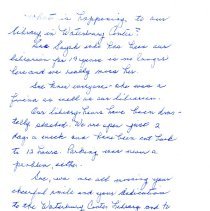 What is happening to our
library in Waterbury Center?
who has been our
librarian for 19 years is no longer
here and we really miss her.
She knew everyone - she was a
friend as well as our librarian.
Our library hours have been dras-
tically slashed. We are open just 2
days a week and have been cut back
to 12 hours. Parking was never a
problem, either.
we are all missing your
cheerful smile and your dedication
to the Waterbury Center Library and to